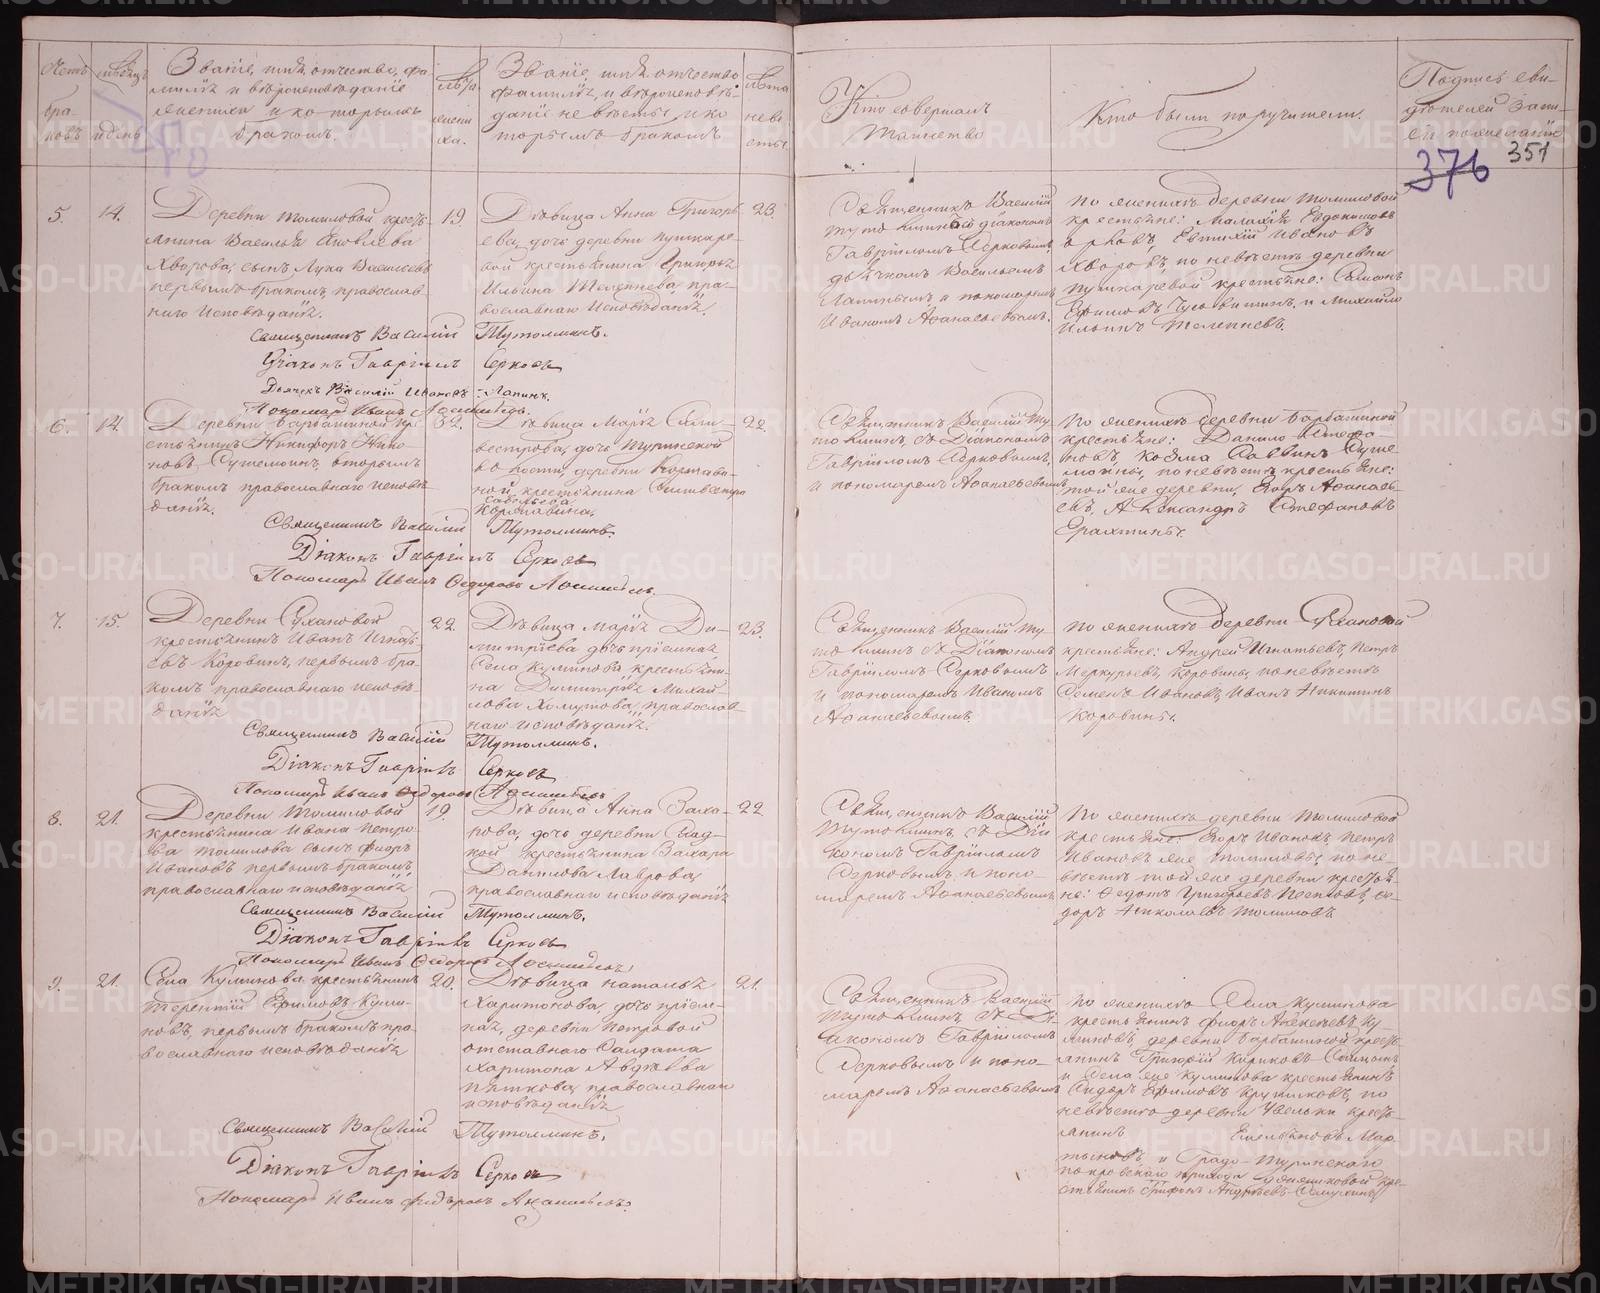 Счетъ браковъ
мѣсяцъ и день
Званіе, имя, отчество, фа-
милія и вѣроисповѣданіе
жениха и которымъ
бракомъ.
Лѣта
жени-
ха.
Званіе, имя, отчество
фамилія, и вѣроисповѣ-
даніе невѣсты и ко
торымъ бракомъ.
Лѣта
невѣ
сты.
Кто совершалъ
таинство
Кто были поручители.
Подпись сви-
дѣтелей запи-
си по желанію
376 351
5. 14.
Деревни Томиловой кресть-
янина Василья Яковлева
Хворова, сынъ Лука Васильевъ
первымъ бракомъ, православ-
наго исповѣданія.
19
Дѣвица Анна Григорь-
ева, дочь деревни Пушкаре-
вой крестьянина Григорья
Ильина Телепнева, пра-
вославнаго исповѣданія.
23.
Священникъ Василій
Тутолминъ съ діакономъ
Гавріиломъ Серковымъ,
дьячкомъ Васильемъ
Лапинымъ и пономаремъ
Иваномъ Аѳанасьевымъ.
По женихѣ деревни Томиловой
крестьяне: Евдокимовъ
Евтихій Ивановъ
Хворовъ, по невѣстѣ деревни
Пушкаревой крестьяне: Семенъ
Ефимовъ и Михайло
Ильинъ Телепневъ.
Священникъ Василій Тутолминъ.
Діаконъ Гавріилъ Серковъ
Дьячекъ Василій Ивановъ Лапинъ.
Пономарь Иванъ Аѳанасьевъ.
6. 14.
Деревни Барбашиной кре-
стьянинъ Никифоръ Нико-
новъ Сушемоинъ, вторымъ
бракомъ православнаго исповѣ-
данія.
32.
Дѣвица Марія Силь-
вестрова, дочь Туринской
волости, деревни Коржави-
ной крестьянина Сильвестра
Савельева
Коржавина.
22.
Священникъ Василій Ту-
толминъ, съ Діакономъ
Гавріиломъ Серковымъ,
и пономаремъ Аѳанасьевымъ
По женихѣ деревни Барбашиной
крестьяне: Данило Стефа-
новъ, Козма Саввинъ Суше-
моины, по невѣстѣ крестьяне:
той же деревни, Егоръ Аѳанась-
евъ, Александръ Стефановъ
Ерахтины.
Священникъ Василій Тутолминъ.
Діаконъ Гавріилъ Серковъ
Пономарь Иванъ Ѳедоровъ Аѳанасьевъ.
7. 15.
Деревни Сухановой
крестьянинъ Иванъ Игнать-
евъ Коровинъ, первымъ бра-
комъ православнаго исповѣ-
данія
22.
Дѣвица Марія Ди-
митріева дочь пріемная
Села Куминова крестьяни-
на Димитрія Михай-
лова Хомутова, православ-
наго исповѣданія.
23.
Священникъ Василій Ту-
толминъ съ Діакономъ
Гавріиломъ Серковымъ
и пономаремъ Иваномъ
Аѳанасьевымъ
По женихѣ деревни Сухановой
крестьяне: Андрей Игнатьевъ, Петръ
Меркурьевъ, Коровины, по невѣстѣ
Семенъ Ивановъ, Иванъ Никитинъ
Коровины.
Священникъ Василій Тутолминъ.
Діаконъ Гавріилъ Серковъ
Пономарь Иванъ Ѳедоровъ Аѳанасьевъ
8. 21.
Деревни Томиловой
крестьянина Ивана Петро-
ва Томилова сынъ Ѳиоръ
Ивановъ первымъ бракомъ,
православнаго исповѣданія
19.
Дѣвица Анна Заха-
рова, дочь деревни
крестьянина Захара
Данилова Лаврова,
православнаго исповѣданія
22
Священникъ Василій
Тутолминъ, съ Діа-
кономъ Гавріиломъ
Серковымъ, и поно-
маремъ Аѳанасьевымъ
По женихѣ деревни Томиловой
крестьяне: Егоръ Ивановъ, Петръ
Ивановъ же Томиловы, по не-
вѣстѣ той же деревни крестья-
не: Ѳедотъ Григорьевъ Ѳе-
доръ Николаевъ Томиловъ
Священникъ Василій Тутолминъ.
Діаконъ Гавріилъ Серковъ
Пономарь Иванъ Ѳедоровъ Аѳанасьевъ
9. 21.
Села Куминова крестьянинъ
Терентій Ефимовъ Куми-
новъ, первымъ бракомъ пра-
вославнаго исповѣданія
20.
Дѣвица Наталья
Харитонова, дочь пріем-
ная, деревни Петровой
отставнаго Солдата
Харитона Авдѣева
Пѣткова, православнаго
исповѣданія
21.
Священникъ Василій
Тутолминъ съ Ді-
акономъ Гавріиломъ
Серковымъ и поно-
маремъ Аѳанасьевымъ
По женихѣ Села Куминова
крестьянинъ Ѳиоръ Алексѣевъ Ку-
миновъ, деревни Барбашиной кресть-
янинъ Григорій
и Села же Куминова крестьянинъ
Сидоръ Ефимовъ по
невѣстѣ деревни кресть-
янинъ Емельяновъ Мар-
тыновъ и Градо-Туринскаго
Покровскаго прихода кре-
стьянинъ Трифонъ Андреевъ
Священникъ Василій Тутолминъ.
Діаконъ Гавріилъ Серковъ
Пономарь Иванъ Ѳедоровъ Аѳанасьевъ.
METRIKI.GASO-URAL.RU